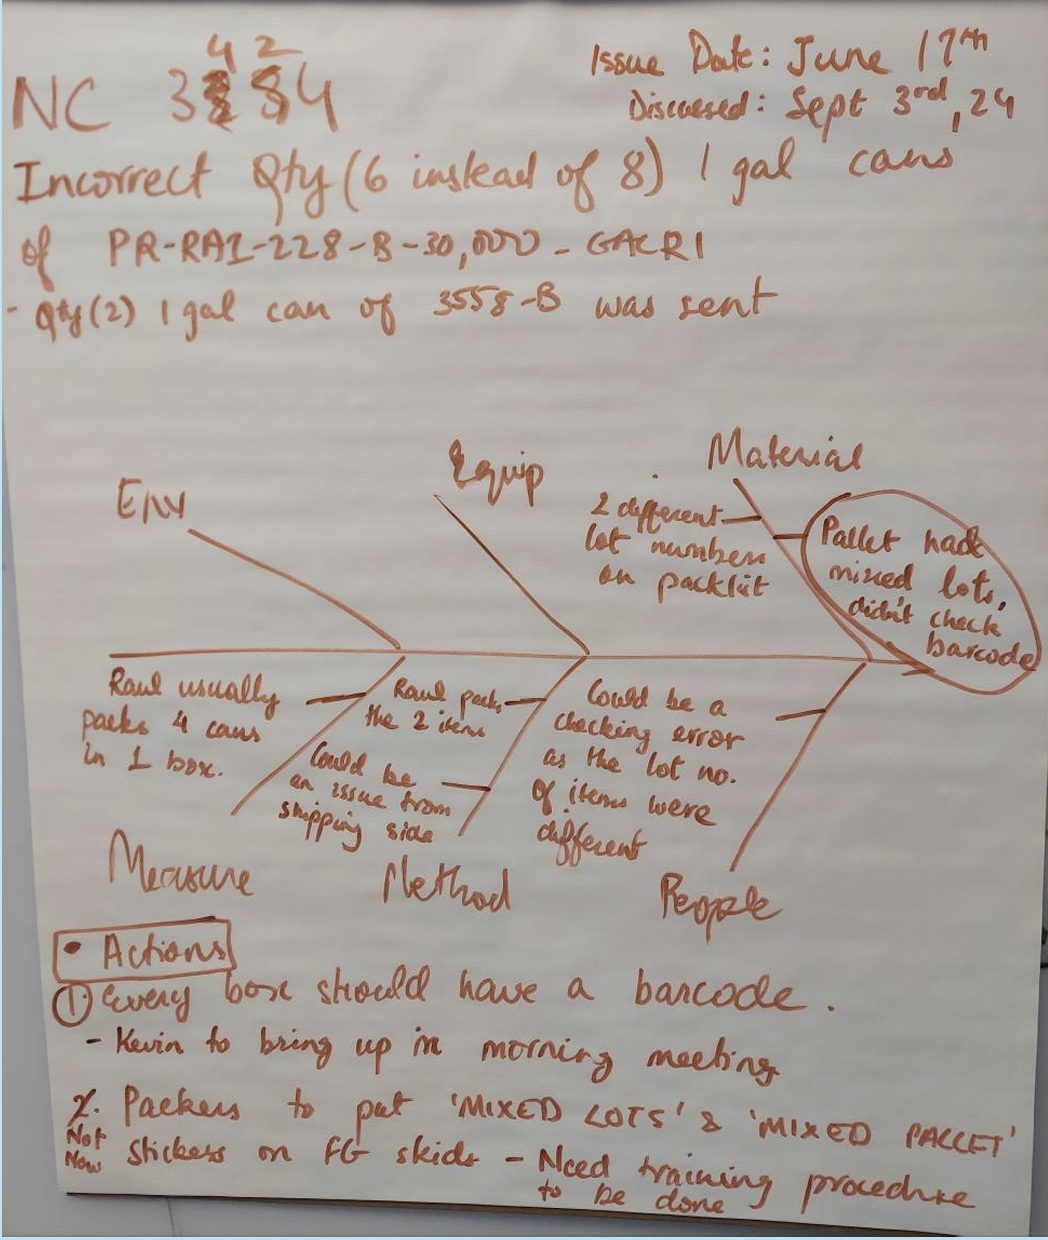 NC 34284
Issue Date: June 17th
Discussed: Sept 3rd, 24
Incorrect Qty (6 instead of 8) 1 gal cans
of PR-RA1-228-B-30,000 - GACRI
- Qty (2) 1 gal can of 3558-B was sent
Env
Equip
Material
2 different
lot numbers
on packlist
Pallet had
mixed lots,
didn't check
barcode
Raul usually
packs 4 cans
in 1 box.
Raul packs
the 2 items
Could be
an issue from
shipping side
Could be a
checking error
as the lot no.
of items were
different
Measure
Method
People
• Actions
① Every box should have a barcode.
- Kevin to bring up in morning meeting
2. Packers to put 'MIXED LOTS' & 'MIXED PALLET'
Not
Now
stickers on FG skids - Need training procedure
to be done